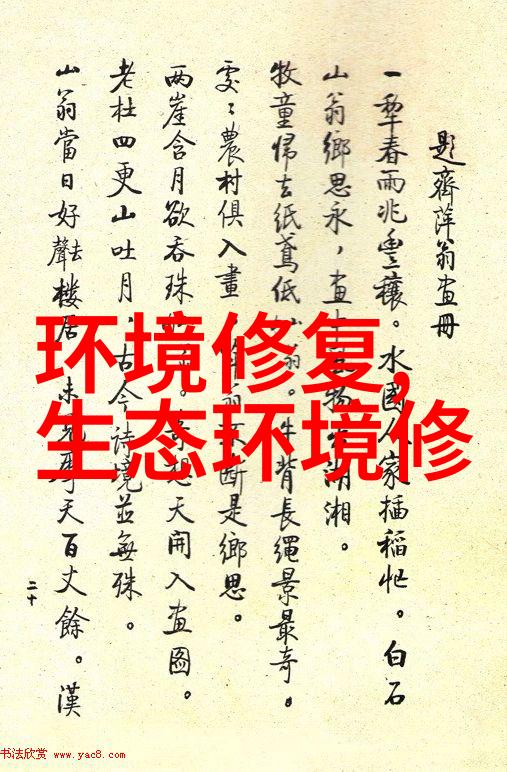 題齊萍翁畫冊
一犂春雨兆豐穰。水國人家插稻忙。白石
山翁鄉思永,畫 物 湘。
牧童歸去紙鳶低 翁。牛背長繩景最奇。
處々農村俱入畫 斷是鄉思。
两崖含月欲吞珠 。 想天開入畫圖。
老杜四更山吐月,古今詩境並無殊。
山翁當日好去聲樓居 未 天百丈餘。漢
二十
环境修复,
生态环境修
书法欣赏 www.yac8.com